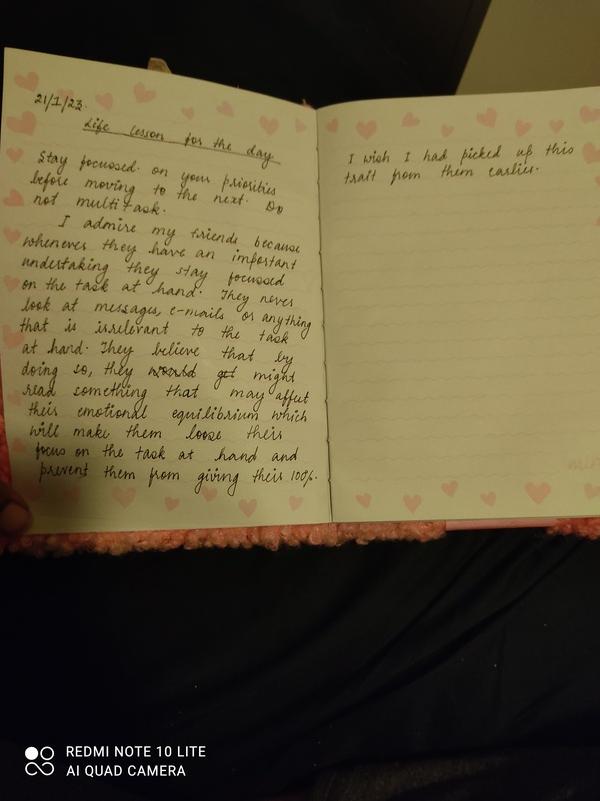 21/1/23.
Life lesson for the day
Stay focussed on your priorities
before moving to the next. Do
not multi task.
I admire my friends because
whenever they have an important
undertaking they stay focussed
on the task at hand. They never
look at messages, e-mails or anything
that is irrelevant to the task
at hand. They believe that by
doing so, they would get might
read something that may affect
their emotional equilibrium which
will make them loose their
focus on the task at hand and
prevent them from giving their 100%.
I wish I had picked up this
trait from them earlier.
REDMI NOTE 10 LITE
AI QUAD CAMERA